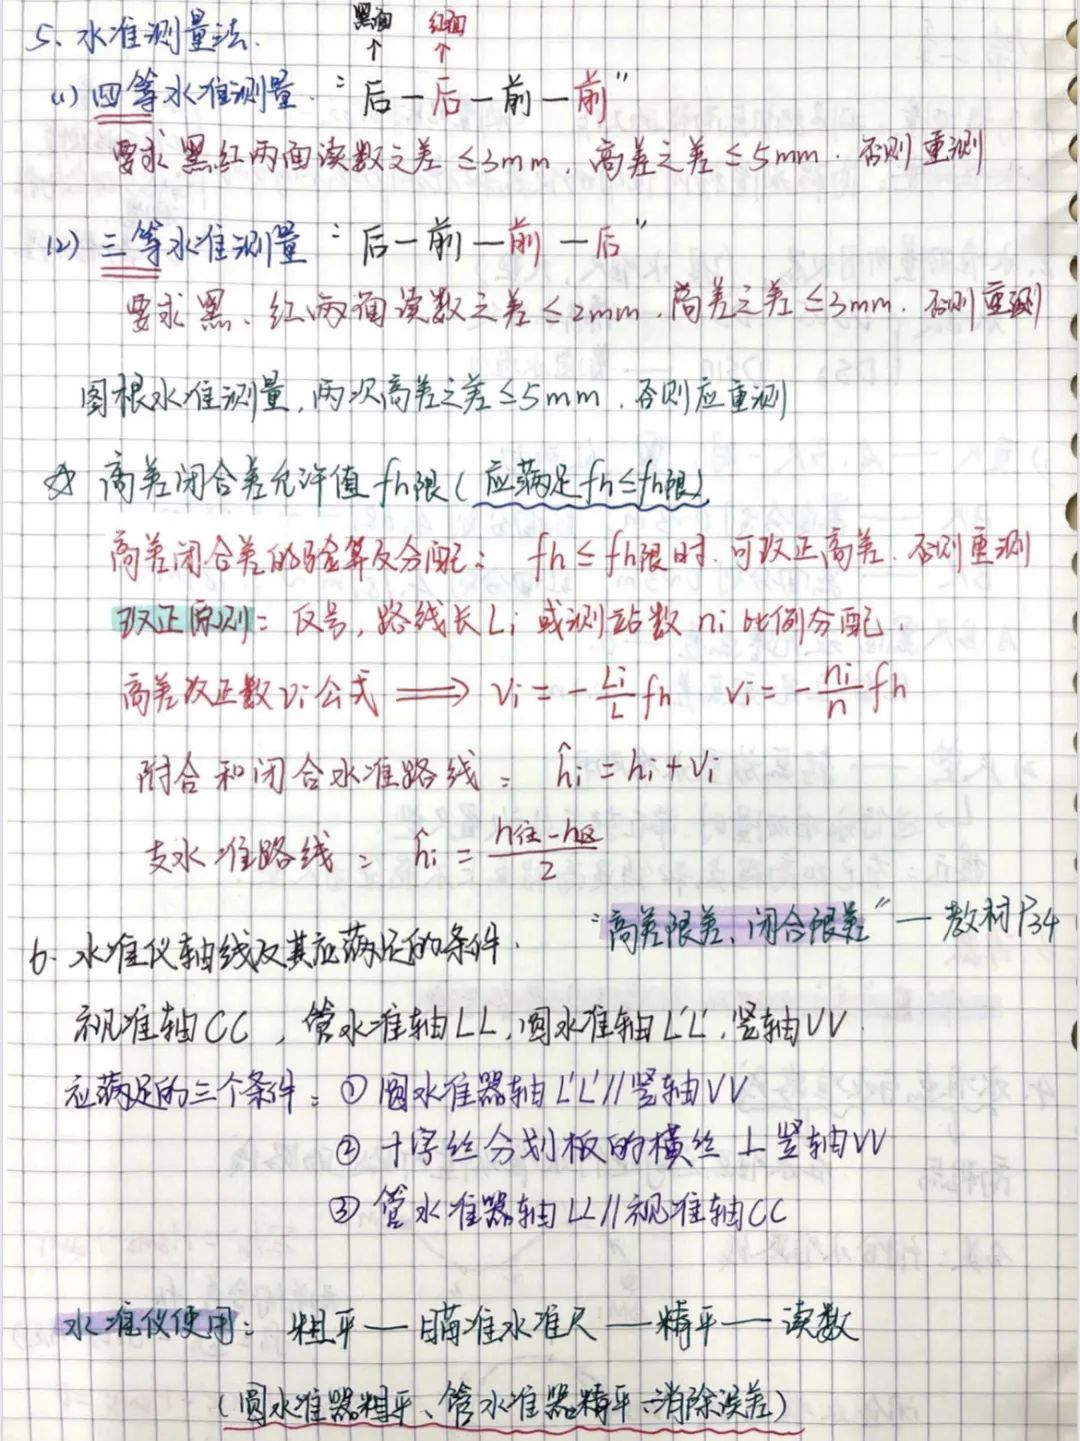 黑面 红面
5、水准测量法.
↑ ↑
(1) 四等水准测量. "后—后—前—前"
要求黑红两面读数之差≤3mm, 高差之差≤5mm. 否则重测
(2) 三等水准测量 "后—前—前—后"
要求黑、红两面读数之差≤2mm, 高差之差≤3mm. 否则重测
图根水准测量, 两次高差之差≤5mm. 否则应重测
☆ 高差闭合差允许值fh限(应满足fh≤fh限)
高差闭合差的验算及分配: fh≤fh限时. 可改正高差. 否则重测
改正原则: 反号, 路线长Li 或测站数 ni 比例分配.
高差改正数Vi公式 ⟹ Vi = -Li/L fh Vi = -ni/n fh
附合和闭合水准路线: ĥi = hi + Vi
支水准路线: ĥi = (h往-h返)/2
"高差限差、闭合限差"—教材P34
6. 水准仪轴线及其应满足的条件.
视准轴CC, 管水准轴LL, 圆水准轴L'L', 竖轴VV.
应满足的三个条件: ① 圆水准器轴L'L'//竖轴VV
② 十字丝分划板的横丝⊥竖轴VV
③ 管水准器轴LL//视准轴CC
水准仪使用: 粗平—瞄准水准尺—精平—读数
(圆水准器粗平、管水准器精平、消除误差)